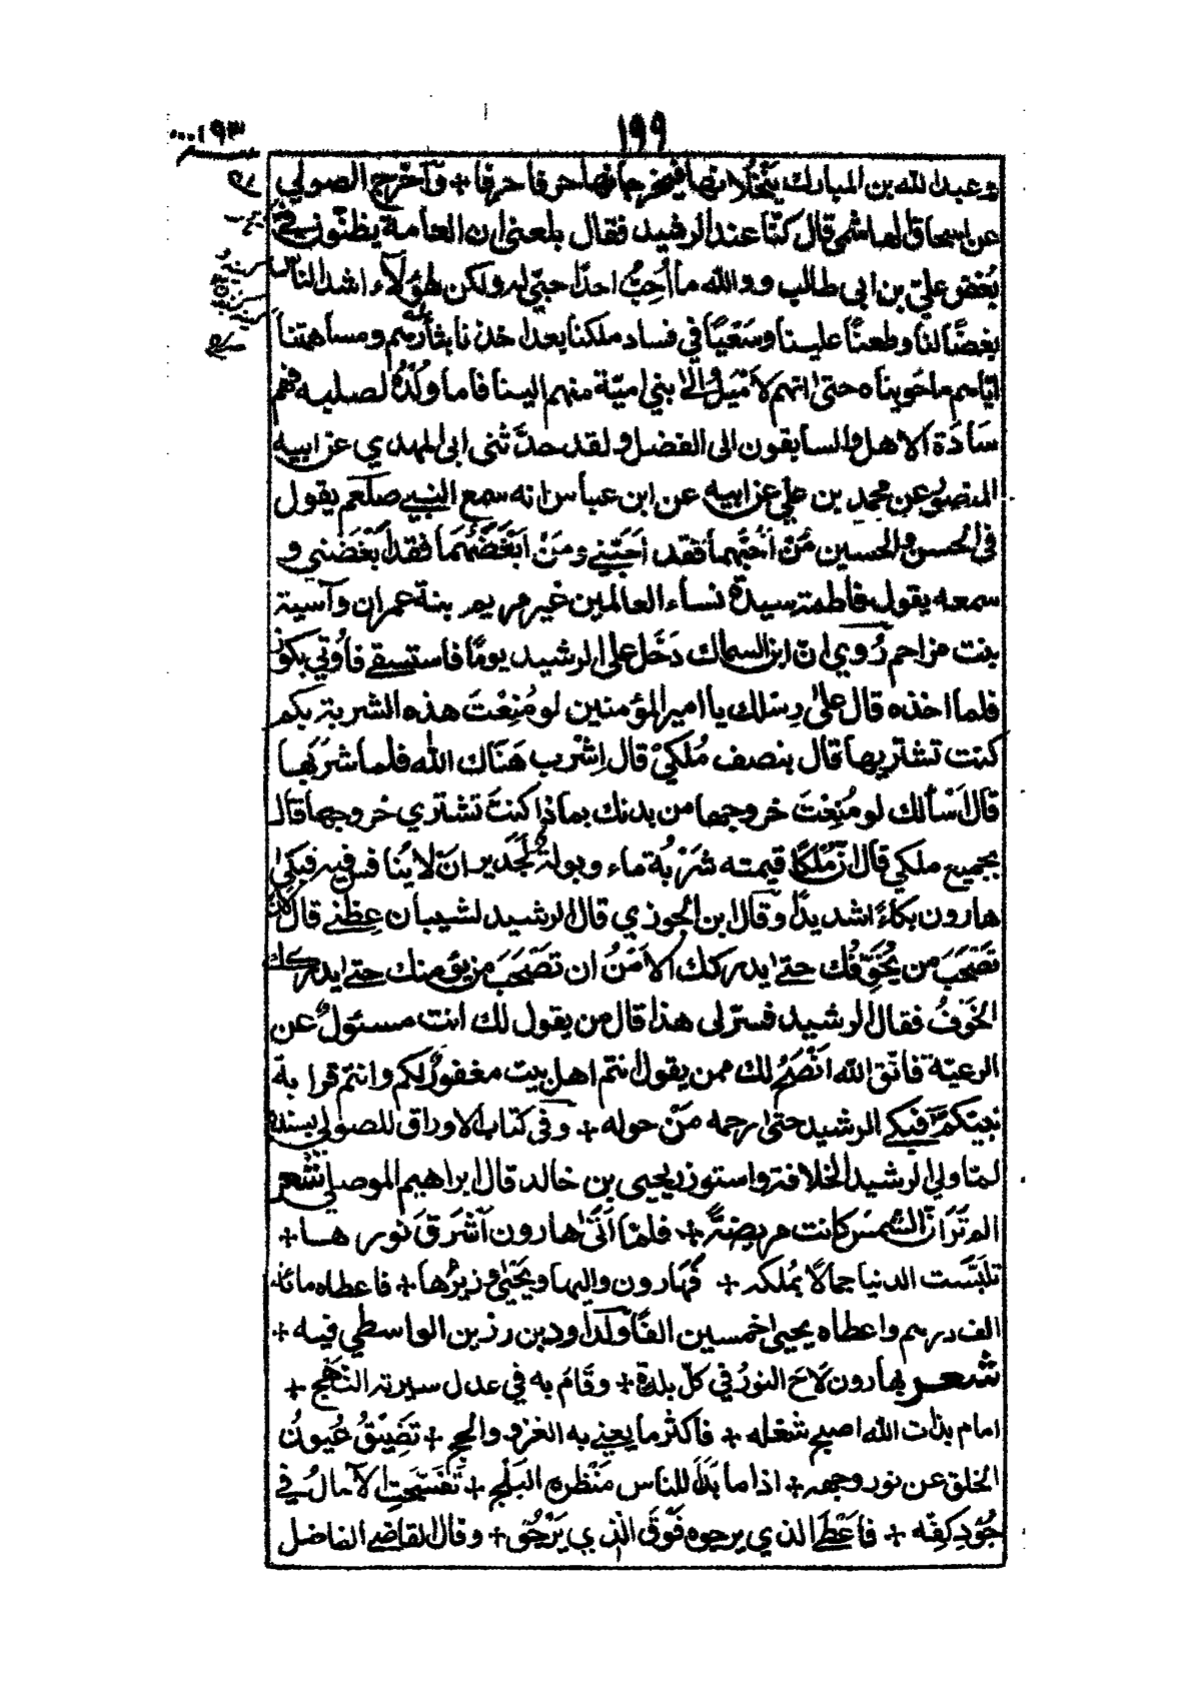 ١٩٩
وعبد الله بن المبارك ينخلانها فيخرجانها حرفا حرفا + وآخرج الصولي
عن اسحاق الهاشمي قال كنّا عند الرشيد فقال بلغنى ان العامة يظنّون فيّ
بُغض عليّ بن ابى طالب ووالله ما أُحِبُّ احدًا حبّي له ولكن هؤلآء اشد الناس
بغضًا لنا وطعنًا علينا وسَعْيًا في فساد ملكنا بعد اخذنا بثارهم ومساهمتنا
ايّاهم ماحَويناه حتى انهم لأَمْيَلُ الىٰ بني اميّة منهم الينا فاما وُلْدُه لصلبه فهم
سَادَة الاهل والسابقون الى الفضل ولقد حدَّثنى ابى المهدي عن ابيه
المنصور عن محمد بن علي عن ابيه عن ابن عباس انه سمع النبي صلعم يقول
فى الحسن والحسين مَنْ اَحَبَّهما فقد اَحَبَّنى ومَنْ اَبْغَضَهُمَا فقد اَبْغَضَنى و
سمعه يقول فاطمة سيدة نساء العالمين غير مريم بنة عمران وآسية
بنت مزاحم رُوي انّ ابن السماك دَخَل على الرشيد يومًا فاستسقى فاُوتي بكوز
فلما اخذه قال علىٰ رِسلك يا امير المؤمنين لو مُنِعْتَ هذه الشربة بكم
كنت تشتريها قال بنصف مُلكي قال اِشْرب هَنَّاك الله فلما شربها
قال اَسْألك لو مُنِعْتَ خروجها من بدنك بماذا كنتَ تشتري خروجها قال
بجميع ملكي قال انّ مُلكًا قيمته شَرْبةُ ماء وبولةٌ لجَدير ان لا يُنافس فيه فبكىٰ
هارون بكاءً شديدًا وقال ابن الجوزي قال الرشيد لشيبان عِظنى قال لان
تَصْحَبَ من يُخَوِّفُك حتى يدركك الاَمْنُ ان تَصْحَبَ من يؤمنك حتى يدركك
الخَوفُ فقال الرشيد فسّر لى هذا قال من يقول لك انت مسئولٌ عن
الرعيّة فاتّق الله اَنْصَحُ لك ممن يقول انتم اهل بيت مغفورٌ لكم وانتم قرابة
نبيّكم فبكى الرشيد حتى رحمه مَنْ حوله + وفى كتاب الاوراق للصولي بسنده
لمّا ولي الرشيد الخلافة واستوزر يحيى بن خالد قال ابراهيم الموصلي شعر
الم تَرَ انّ الشّمس كانت مريضةً + فلمّا اَتىٰ هارون اَشْرَقَ نورها +
تلبّست الدنيا جمالًا بمُلكه + فهَارون واليها ويَحْيىٰ وزيرُها + فاعطاه مائة
الف درهم واعطاه يحيى خمسين الفًا ولداود بن رزين الواسطي فيه +
شعر بهارون لَاحَ النورُ في كلّ بلدة + وقَامَ به في عدل سيرته النَهْج +
امام بذات الله اصبح شغله + فاكثر ما يعنى به الغزو والحج + تَضِيْقُ عُيونُ
الخلق عن نور وجهه + اذا ما بَدَا للناس مَنْظره البَلْج + تَفَسَّحَتِ الآمالُ في
جُوْدِ كفّه + فاَعْطَا الذي يرجوه فَوْقَ الّذي يَرْجُو + وقال القاضى الفاضل